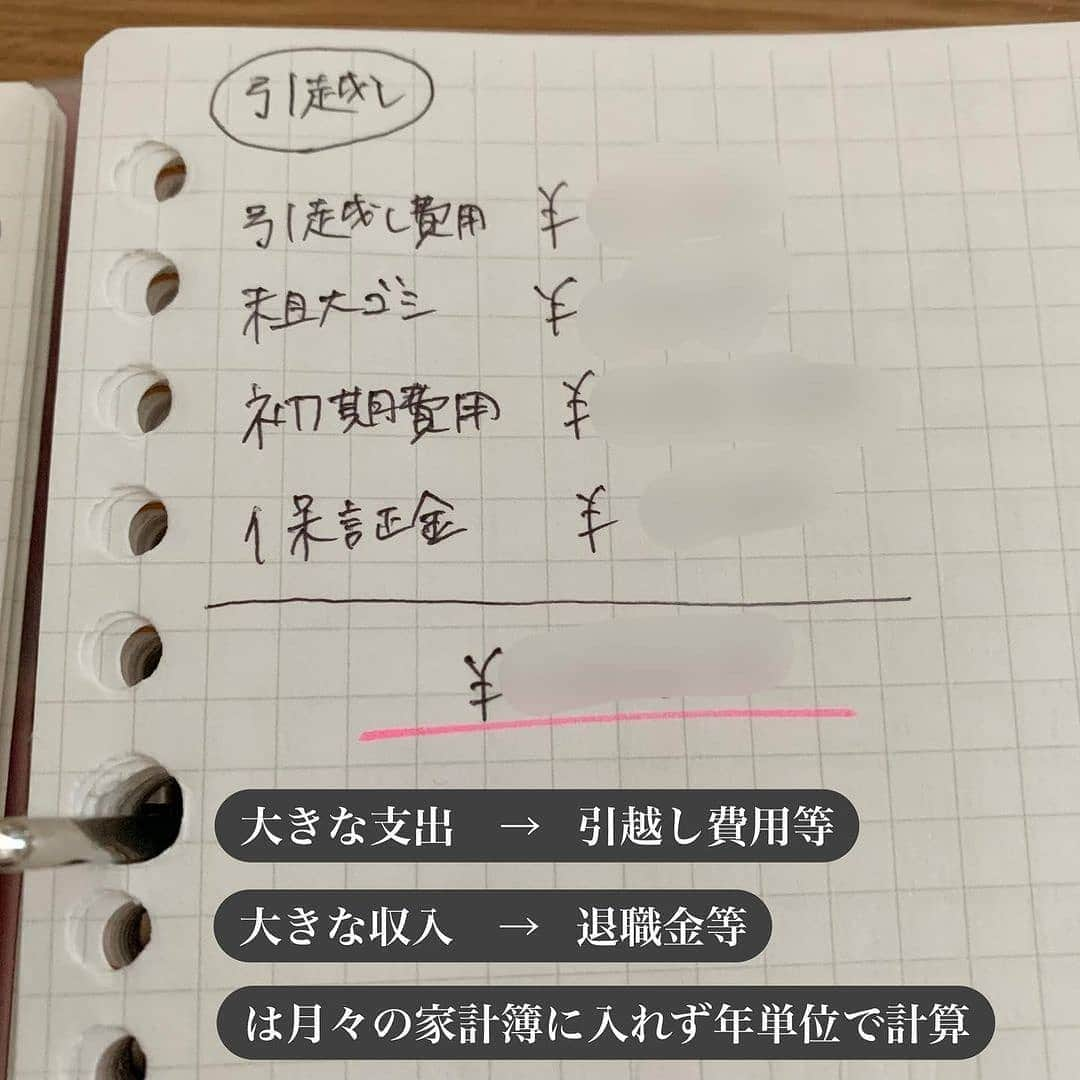 引越し
引越し費用 ¥
粗大ゴミ ¥
初期費用 ¥
保証金 ¥
¥
大きな支出 → 引越し費用等
大きな収入 → 退職金等
は月々の家計簿に入れず年単位で計算